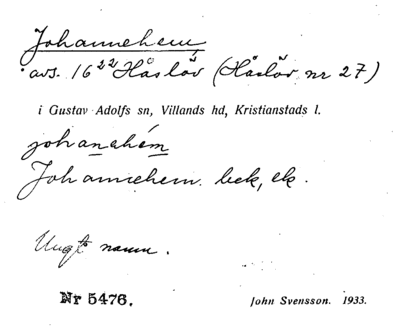 Johannehem
avs. 16²² Håslöv (Håslöv nr 27)
i Gustav Adolfs sn, Villands hd, Kristianstads l.
johanahém
Johannehem. bek, ek.
Ungt namn.
Nr 5476.
John Svensson. 1933.